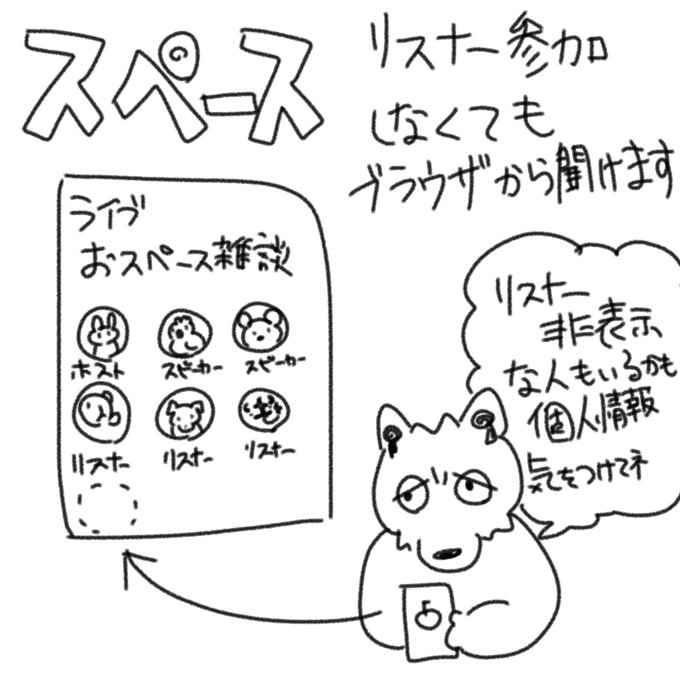 スペース
リスナー参加
しなくても
ブラウザから聞けます
ライブ
おスペース雑談
ホスト
スピーカー
スピーカー
リスナー
リスナー
リスナー
リスナー
非表示
な人もいるかも
個人情報
気をつけてネ